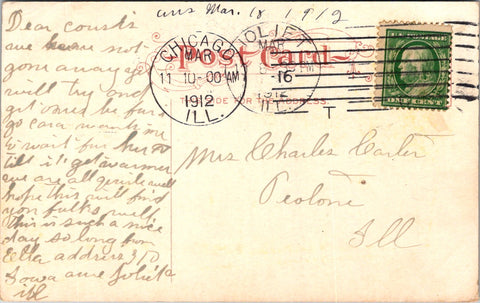 Dear cousin
we have not
gone away yet
will try and
get ones be for
go cara wants me
to wait for her
till it get warmer
we are all quite well
hope this will find
you folks well
this is such a nice
day so long from
Ella address 310
Iowa ave Joliet
ill
ans Mar. 18 1912
Post Card
THIS SIDE FOR THE ADDRESS.
CHICAGO
MAR
11 10-00 AM
1912
ILL.
JOLIET
MAR
-16
1912
ILL.
T
ONE CENT
Mrs Charles Carter
Peotone
Ill